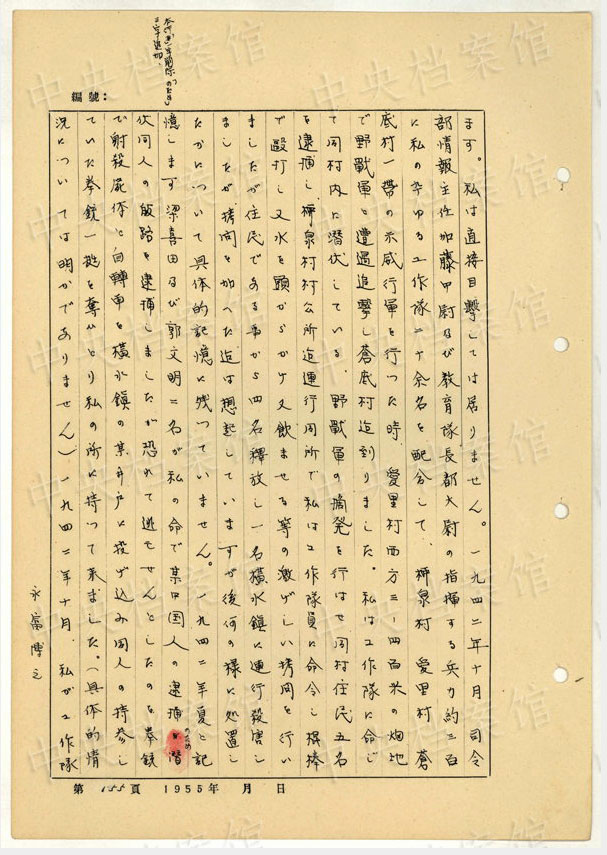 本行「ヲ」ヲ削除「のため」
三字追加
編號:
ます。私は直接目撃しては居りません。一九四二年十月司令
部情報主任加藤中尉及び教育隊長都大尉の指揮する兵力約三百
に私の率ゆる工作隊二十余名を配分して、柳泉村 愛里村 蒼
底村一帯の示威行軍を行った時、愛里村西方三—四百米の畑地
で野戰軍と遭遇追撃し蒼底村迄到りました。私は工作隊に命じ
て同村内に潜伏している、野戰軍の摘発を行はせ同村住民五名
を逮捕し柳泉村村公所迄連行同所で私は工作隊員に命令し棍棒
で毆打し又水を頭からかけ又飲ませる等の激げしい拷問を行い
ましたが住民である事から四名釋放し一名横水鎮に連行殺害し
ましたが拷問を加へた迄は想起していますが後何の様に処置し
たかについて具体的記憶に残っていません。一九四二年夏と記
憶します梁喜田及び郭文明二名が私の命で某中国人の逮捕のため潜
伏同人の帰路を逮捕しましたが恐れて逃亡せんとしたのを拳銃
で射殺屍体と自轉車を横水鎮の某井戸に投げ込み同人の持参し
ていた拳銃一挺を奪いとり私の所に持って来ました。(具体的情
況については明かでありません)一九四二年十月、私が工作隊
永富博之
第 155 頁 1955年 月 日
中央档案馆